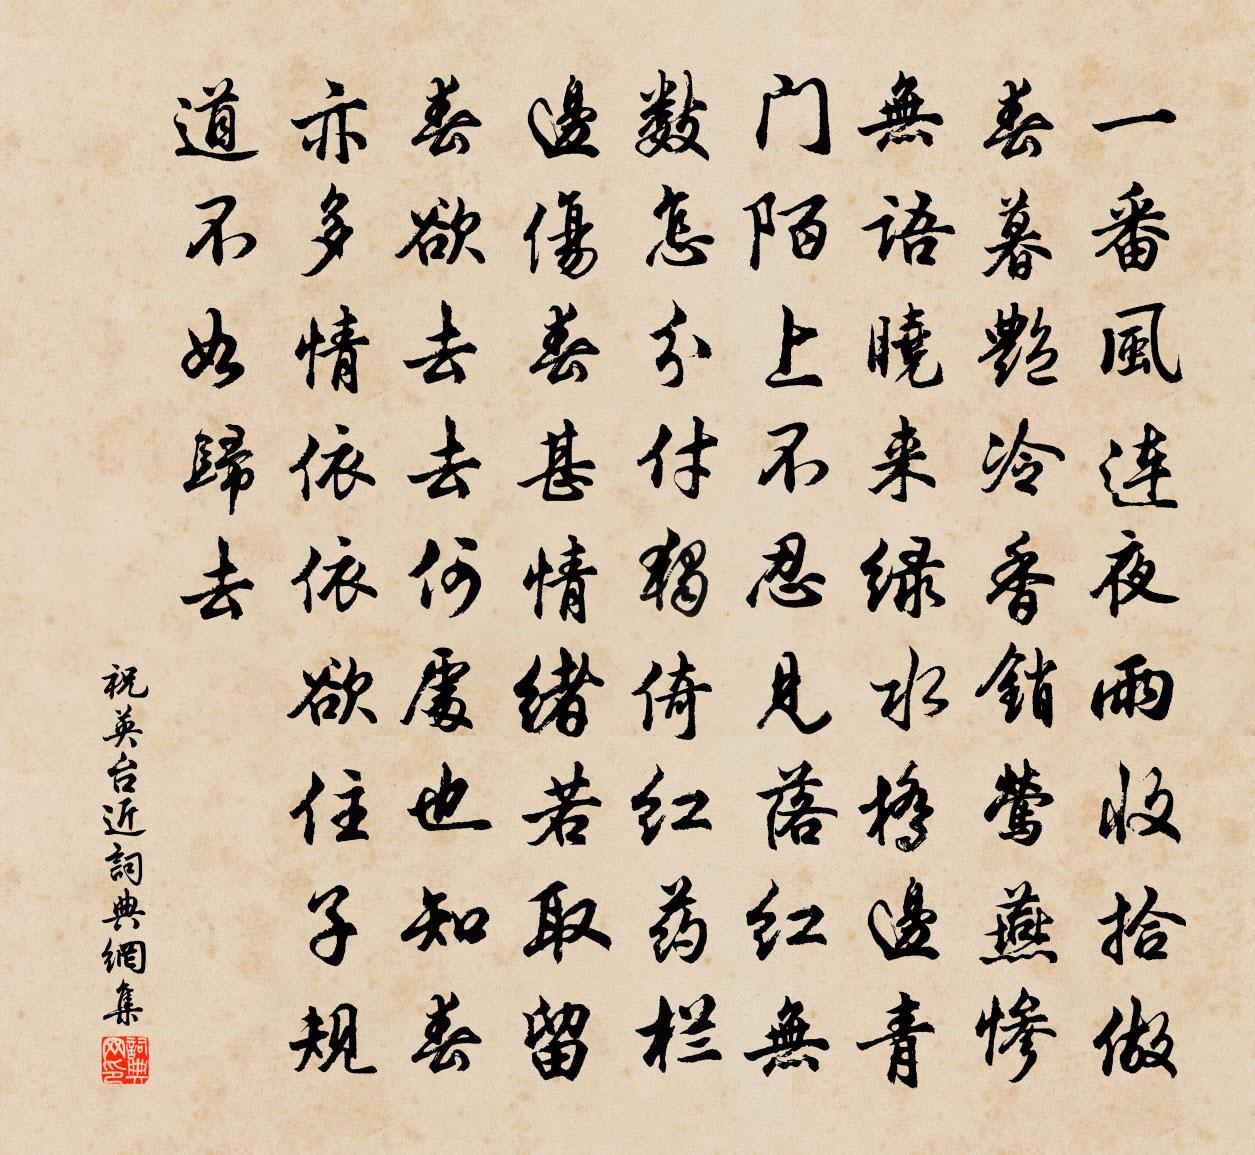 一番風連夜雨收拾做
春暮艷冷香銷鶯燕慘
無語曉来緑水橋邊青
门陌上不忍見落红無
数怎分付獨倚红药栏
邊傷春甚情緒若取留
春欲去去何處也知春
亦多情依依欲住子規
道不如歸去
祝英台近詞典網集
詞典网印